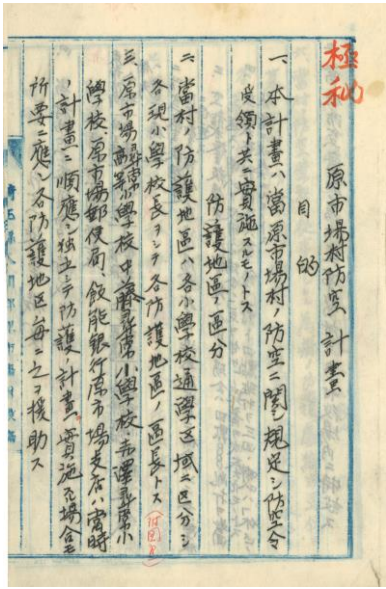 極秘
原市場村防空計畫
目的
一、本計畫ハ當原市場村ノ防空ニ関シ規定シ防空令
受領ト共ニ實施スルモノトス
防護地區ノ區分
二、當村ノ防護地區ハ各小學校通學区域ニ区分シ
各現小學校長ヲシテ各防護地區ノ區長トス
三、原市場尋常高等小學校、中藤尋常小學校、赤澤尋常小
學校、原市場郵便局、飯能銀行原市場支店ハ當時
ノ計畫ニ順應シ独立シテ防護ノ計畫實施スル場合モ
所要ニ應シ各防護地区毎ニ之ヲ援助ス